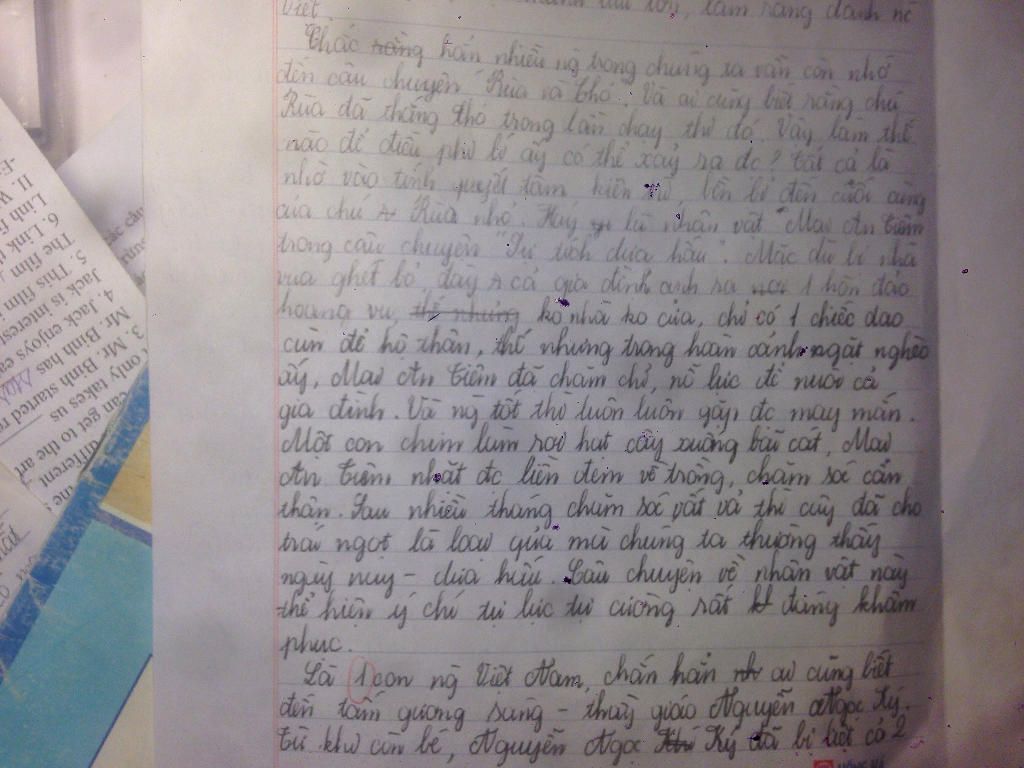 làm rạng danh nc
Việt
Chắc rằng hẳn nhiều ng trong chúng ta vẫn còn nhớ
đến câu chuyện "Rùa và Thỏ". Và ai cũng biết rằng chú
Rùa đã thắng thỏ trong lần chạy thi đó. Vậy làm thế
nào để điều phi lí ấy có thể xảy ra đc? Tất cả là
nhờ vào tính quyết tâm, kiên trì, bền bỉ đến cuối cùng
của chú Rùa nhỏ. Hay là nhân vật Mai An Tiêm
trong câu chuyện "Sự tích dưa hấu". Mặc dù bị nhà
vua ghét bỏ, đày cả gia đình anh ra nơi 1 hòn đảo
hoang vu, thế nhưng ko nhà ko cửa, chỉ có 1 chiếc dao
cùn để hộ thân, thế nhưng trong hoàn cảnh ngặt nghèo
ấy, Mai An Tiêm đã chăm chỉ, nỗ lực để nuôi cả
gia đình. Và ng tốt thì luôn luôn gặp đc may mắn.
Một con chim làm rơi hạt cây xuống bãi cát, Mai
An Tiêm nhặt đc liền đem về trồng, chăm sóc cẩn
thận. Sau nhiều tháng chăm sóc vất vả thì cây đã cho
trái ngọt là loại quả mà chúng ta thường thấy
ngày nay - dưa hấu. Câu chuyện về nhân vật này
thể hiện ý chí tự lực tự cường rất đáng khâm
phục.
Là 1 con ng Việt Nam, chắn hẳn ai cũng biết
đến tấm gương sáng - thầy giáo Nguyễn Ngọc Ký.
Từ khi còn bé, Nguyễn Ngọc Ký đã bị liệt cả 2
HỒNG HÀ
-E
II. W
Linh f
6. Link
The film
5. This film
Jack is interes
4. Jack enjoys
Mr. Binh has started
3. Mr. Binh
only takes us
can get to the
different